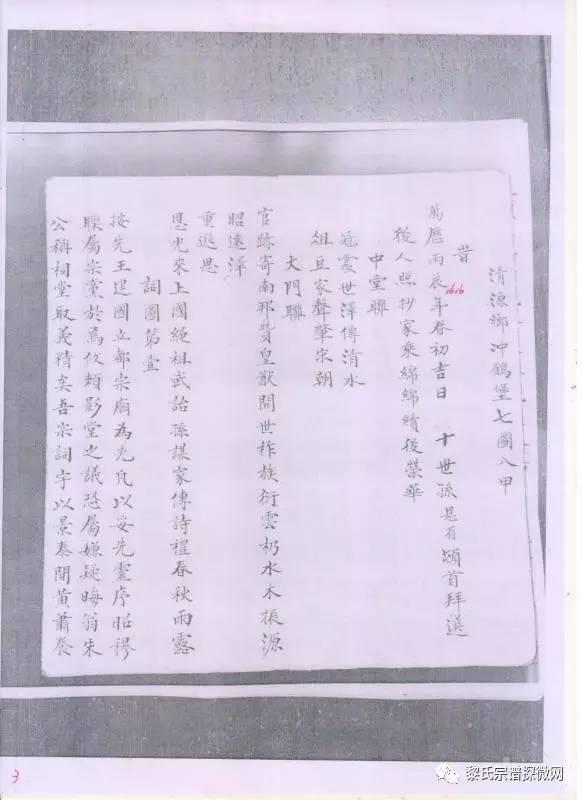 清源鄉沖鶴堡七圖八甲
旹
萬曆丙辰年春初吉日 十世孫思有頓首拜選
1616
後人照抄家乘綿綿續後榮華
中堂聯
冠裳世澤傳清水
俎豆家聲肇宋朝
大門聯
官跡寄南邦贊皇猷開世祚族衍雲礽水木振源
昭遠澤
重遐思
恩光來上國繩祖武詒孫謀家傳詩禮春秋雨露
詞圖第壹
按先王建國立都宗廟為先凡以妥先靈序昭穆
聯属宗黨於焉攸頼影堂之議恐属嫌疑晦翁朱
公稱祠堂取義精矣吾宗詞宇以景泰間黃蕭養
3
黎氏宗谱探微网